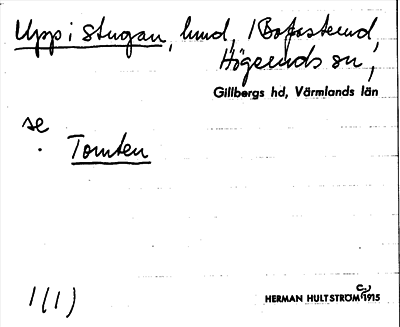 Upp i stugan, hmd, 1 Bofasterud,
Högerud sn,
Gillbergs hd, Värmlands län
se
Tomten
1(1)
HERMAN HULTSTRÖM C) 1915